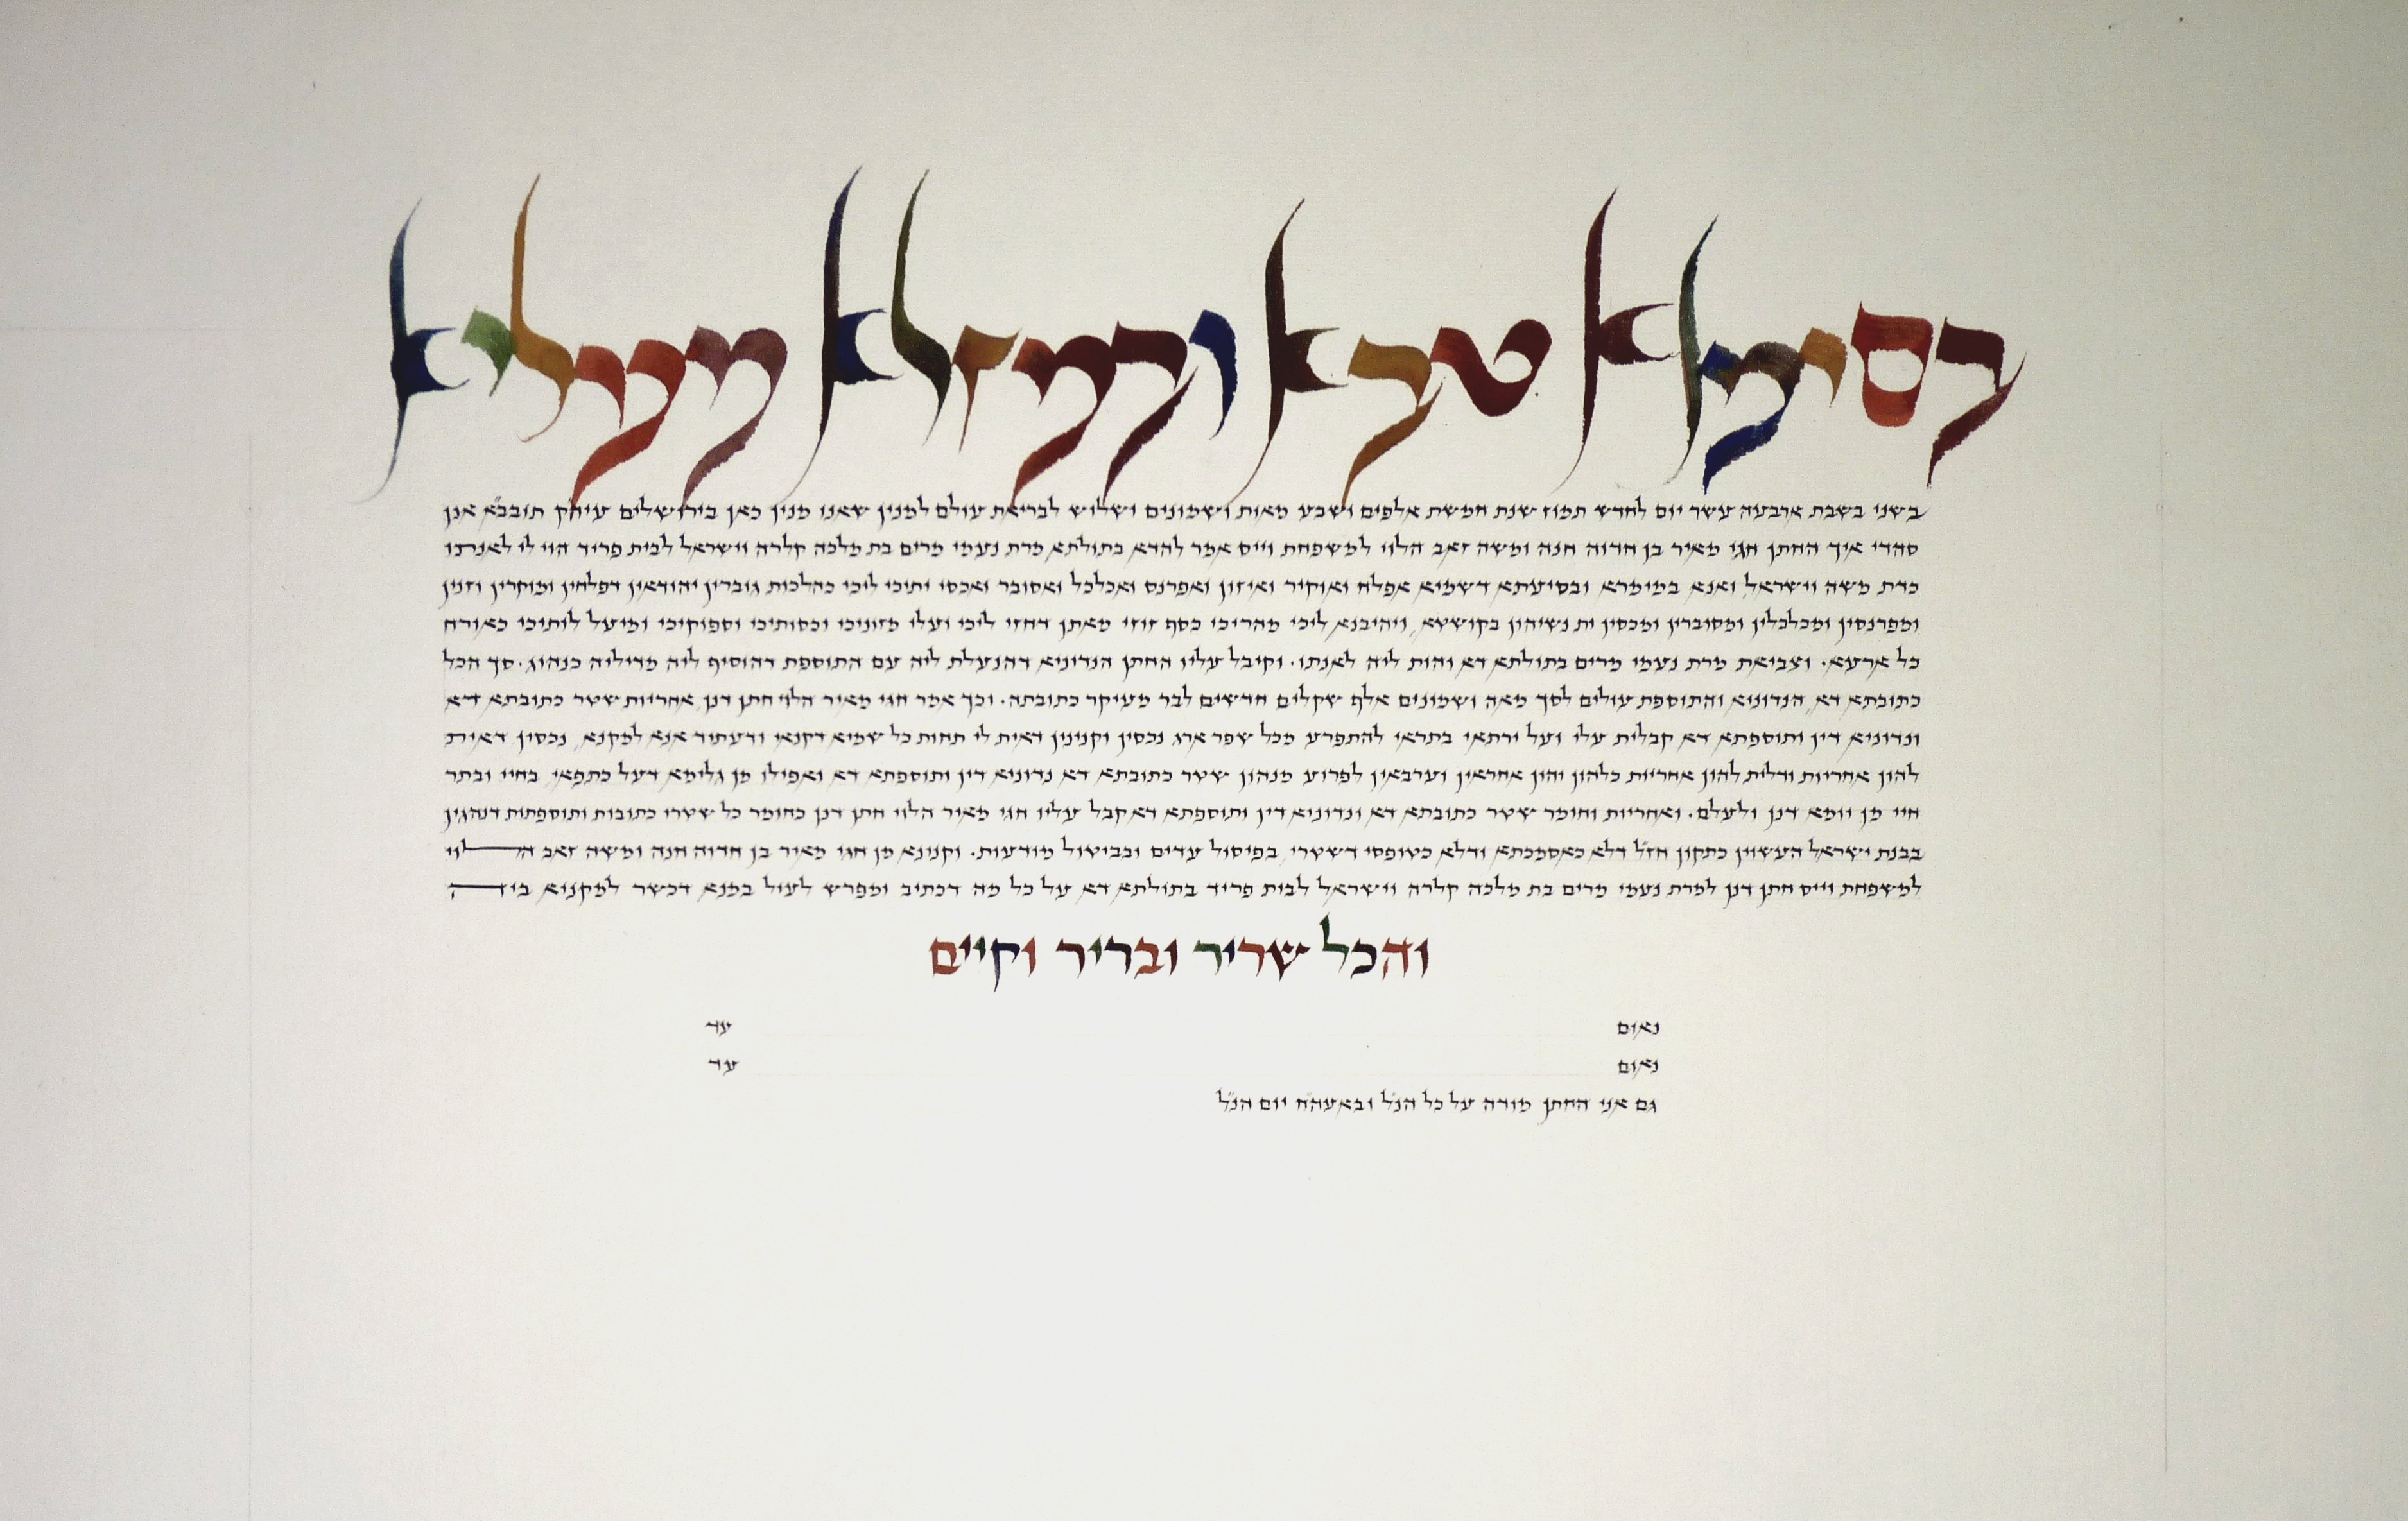 בסימנא טבא ובמזלא מעליא
בשני בשבת ארבעה עשר יום לחדש תמוז שנת חמשת אלפים ושבע מאות ושמונים ושלוש לבריאת עולם למנין שאנו מנין כאן בירושלים עיה״ק תובב״א אנן
סהדי איך החתן חגי מאיר בן חדוה חנה ומשה זאב הלוי למשפחת וייס אמר להדא בתולתא מרת נעמי מרים בת מלכה קלרה וישראל לבית פריד הוי לי לאנתו
כדת משה וישראל, ואנא במימרא ובסיעתא דשמיא אפלח ואוקיר ואיזון ואפרנס ואכלכל ואסובר ואכסי יתיכי ליכי כהלכות גוברין יהודאין דפלחין ומוקרין וזנין
ומפרנסין ומכלכלין ומסוברין ומכסין ית נשיהון בקושטא, ויהיבנא ליכי מהריכי כסף זוזי מאתן דחזי ליכי ועלי מזוניכי וכסותיכי וספוקיכי ומיעל לותיכי כאורח
כל ארעא. וצביאת מרת נעמי מרים בתולתא דא והות ליה לאנתו. וקיבל עליו החתן הנדוניא דהנעלת ליה עם התוספת דהוסיף ליה מדיליה כנהוג. סך הכל
כתובתא דא, הנדוניא והתוספת עולים לסך מאה ושמונים אלף שקלים חדשים לבר מעיקר כתובתה. וכך אמר חגי מאיר הלוי חתן דנן, אחריות שטר כתובתא דא
ונדוניא דין ותוספתא דא קבלית עלי ועל ירתאי בתראי להתפרע מכל שפר ארג נכסין וקנינין דאית לי תחות כל שמיא דקנאי ודעתיד אנא למקנא, נכסין דאית
להון אחריות ודלית להון אחריות כלהון יהון אחראין וערבאין לפרוע מנהון שטר כתובתא דא נדוניא דין ותוספתא דא ואפילו מן גלימא דעל כתפאי, בחיי ובתר
חיי מן יומא דנן ולעלם. ואחריות וחומר שטר כתובתא דא ונדוניא דין ותוספתא דא קבל עליו חגי מאיר הלוי חתן דנן כחומר כל שטרי כתובות ותוספתות דנהגין
בבנת ישראל העשוין כתקון חז״ל דלא כאסמכתא ודלא כטופסי דשטרי, בפיסול עדים ובביטול מודעות. וקנינא מן חגי מאיר בן חדוה חנה ומשה זאב הלוי
למשפחת וייס חתן דנן למרת נעמי מרים בת מלכה קלרה וישראל לבית פריד בתולתא דא על כל מה דכתיב ומפרש לעיל במנא דכשר למקניא ביה
והכל שריר ובריר וקיים
נאום עד
נאום עד
גם אני החתן מודה על כל הנ״ל ובאעה״ח יום הנ״ל